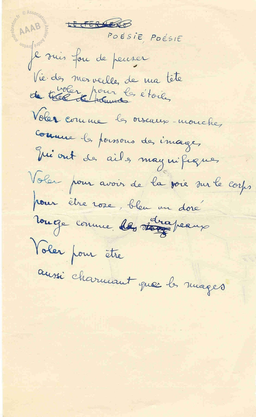 AAAB
POÉSIE POÉSIE
Je suis fou de penser
Vie des merveilles de ma tête
voler pour les étoiles
Voler comme les oiseaux-mouches
comme les poissons des images
Qui ont des ailes magnifiques
Voler pour avoir de la soie sur le corps
pour être rose, bleu ou doré
rouge comme drapeaux
Voler pour être
aussi charmant que les nuages